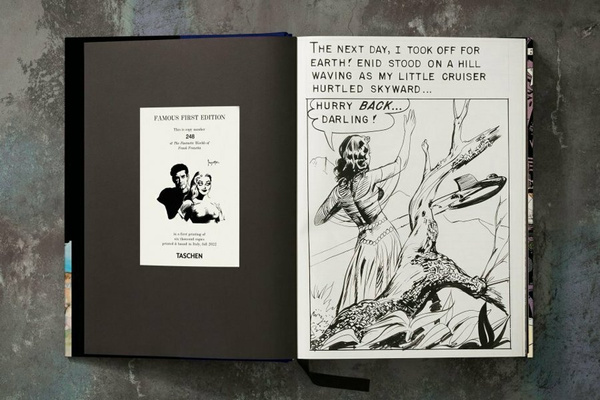 FAMOUS FIRST EDITION
This is copy number
248
of The Fantastic Worlds of
Frank Frazetta
in a first printing of
six thousand copies
printed & bound in Italy, fall 2022
TASCHEN
THE NEXT DAY, I TOOK OFF FOR
EARTH! ENID STOOD ON A HILL
WAVING AS MY LITTLE CRUISER
HURTLED SKYWARD...
HURRY BACK...
DARLING!